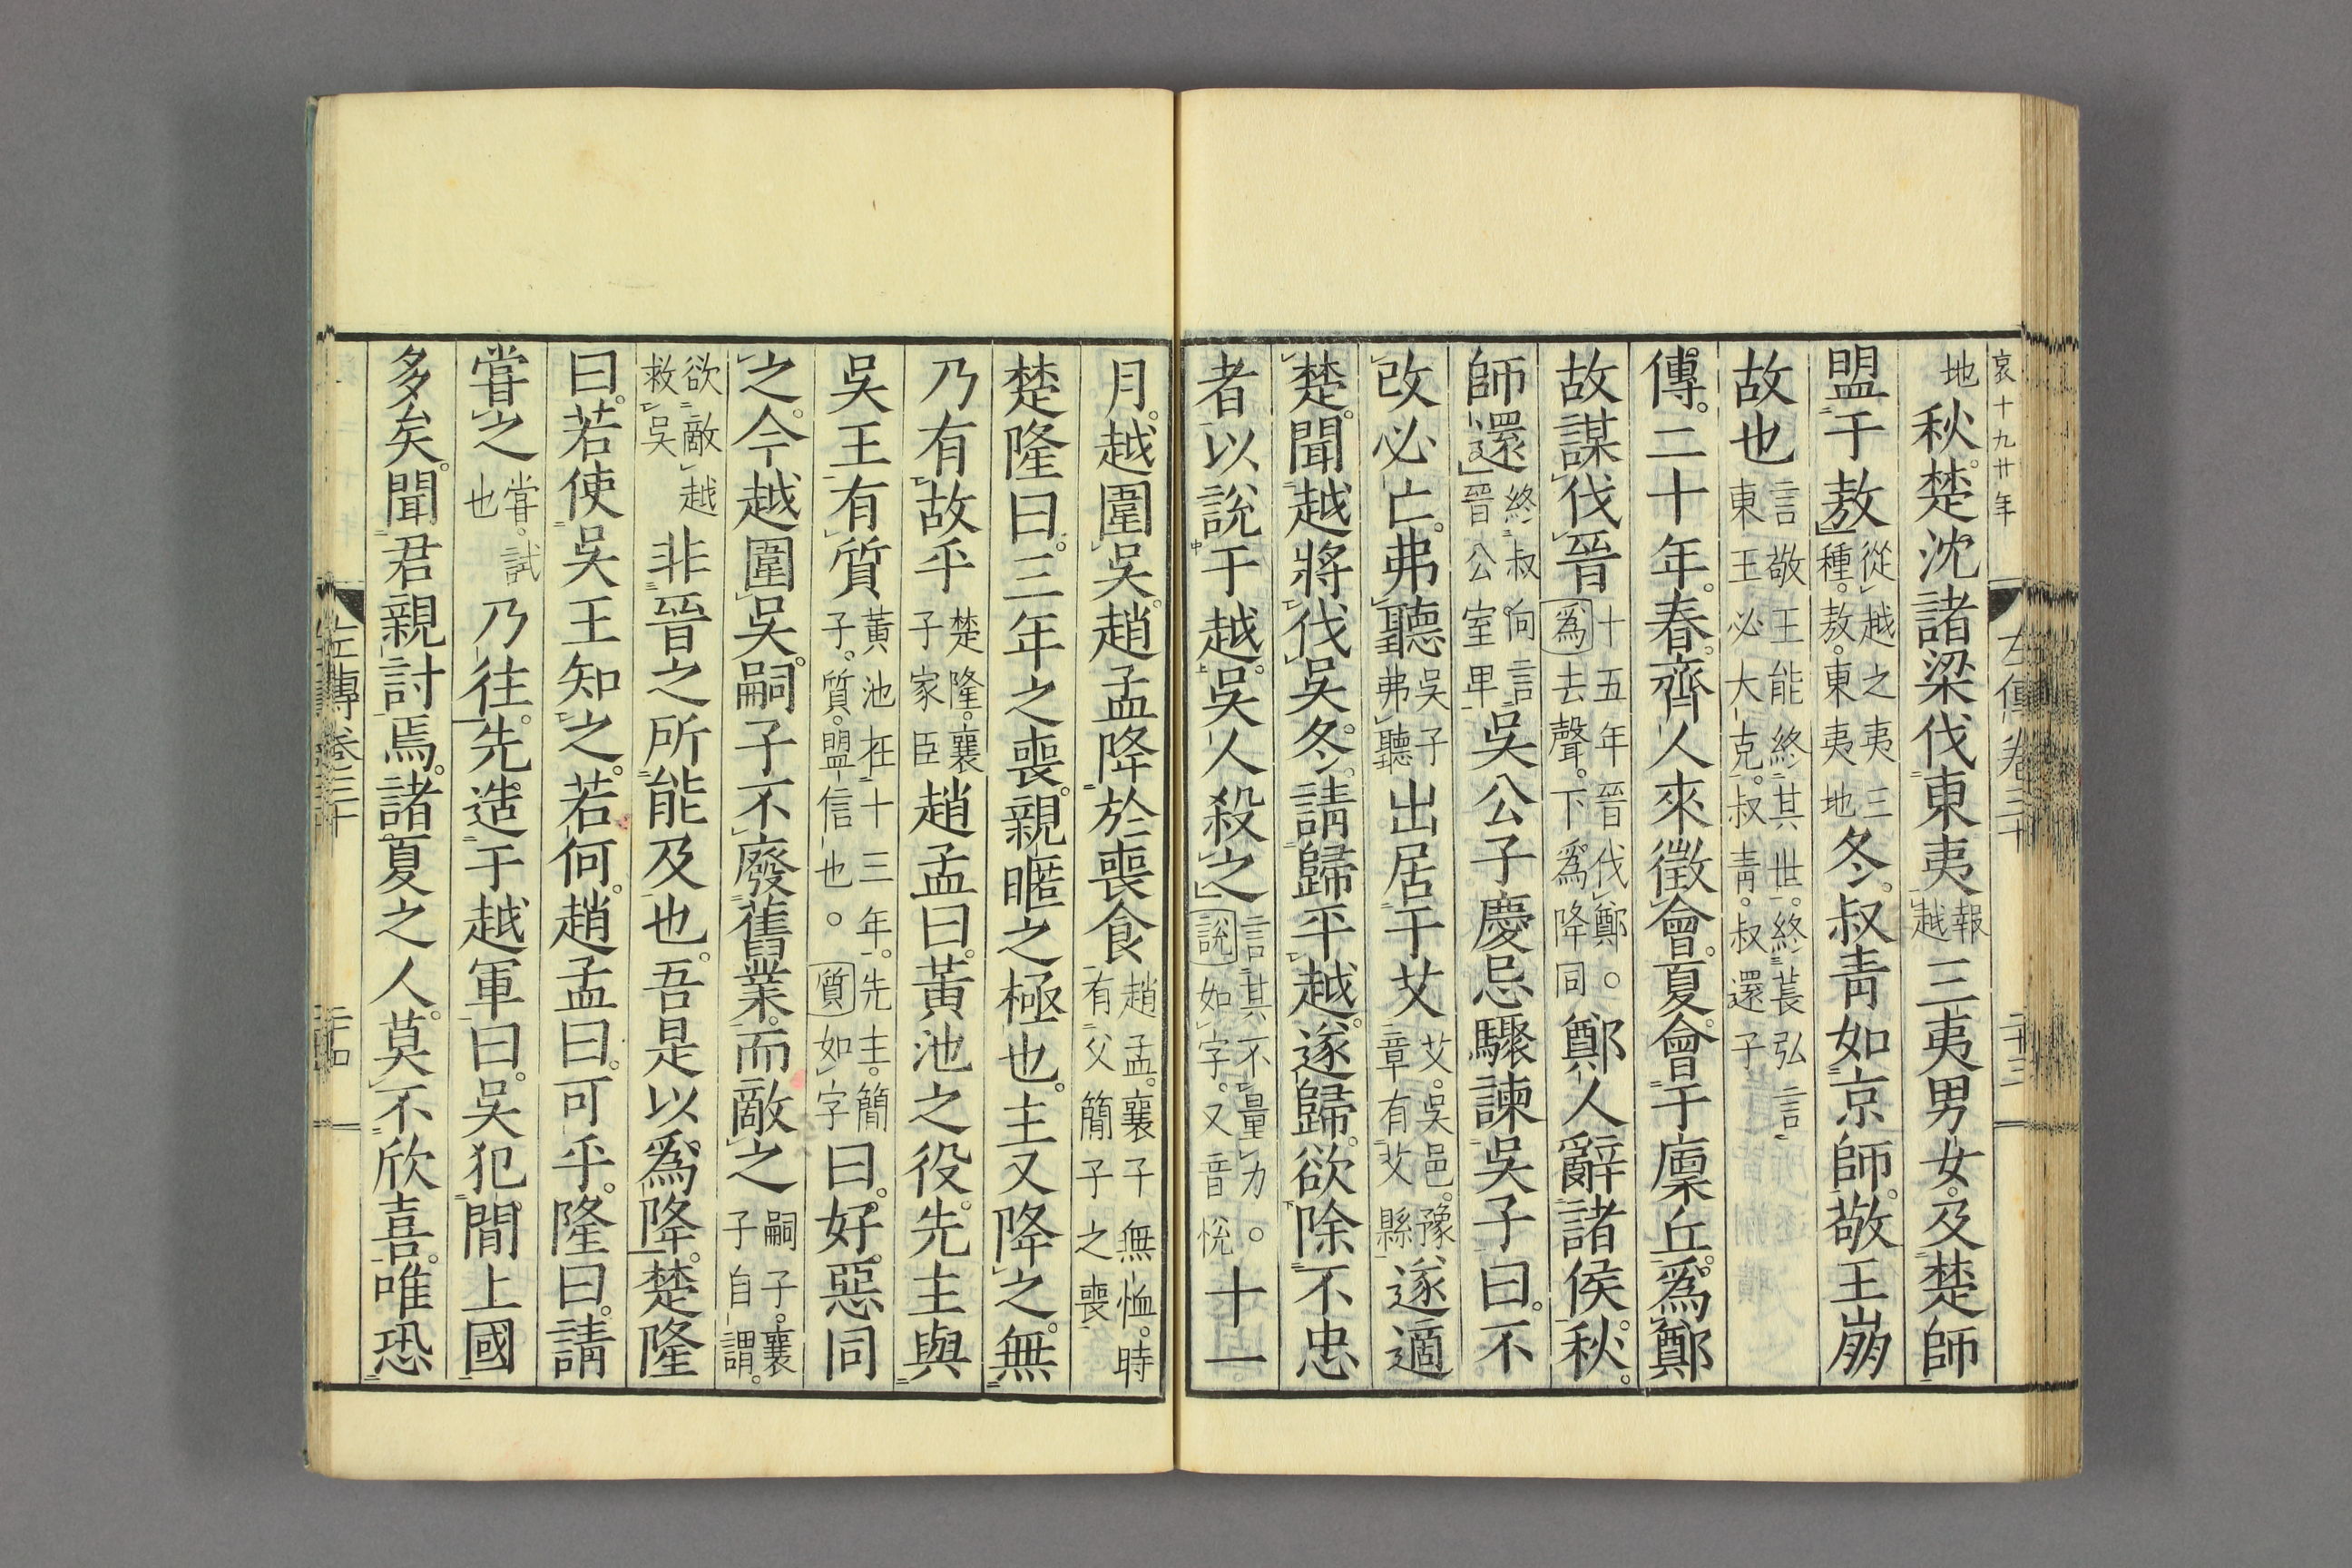 哀十九廿年
左傳卷三十
二十三
地秋。楚沈諸梁伐東夷報越三夷男女。及楚師
盟于敖從越之夷三種。敖。東夷地冬。叔青如京師。敬王崩
故也言敬王能終其世。終萇弘言東王必大克。叔青。叔還子
傳。二十年。春。齊人來徵會。夏。會于廩丘。爲鄭
故。謀伐晉十五年晉伐鄭。爲去聲。下爲降同鄭人辭諸侯。秋。
師還終叔向言晉公室卑吳公子慶忌驟諫吳子曰。不
改必亡。弗聽吳子弗聽出居于艾艾。吳邑。豫章有艾縣遂適
楚。聞越將伐吳。冬。請歸平越。遂歸。欲除不忠
者以說于越。吳人殺之言其不量力。說如字。又音悅十一
月。越圍吳。趙孟降於喪食趙孟。襄子無恤。時有父簡子之喪
楚隆曰。三年之喪。親暱之極也。主又降之。無
乃有故乎楚隆。襄子家臣趙孟曰。黃池之役。先主與
吳王有質黃池在十三年。先主。簡子。質。盟信也。質如字曰。好惡同
之。今越圍吳。嗣子不廢舊業。而敵之嗣子。襄子自謂。
欲敵越救吳非晉之所能及也。吾是以爲降。楚隆
曰。若使吳王知之。若何。趙孟曰。可乎。隆曰。請
嘗之嘗。試也乃往。先造于越軍曰。吳犯閒上國
多矣。聞君親討焉。諸夏之人。莫不欣喜。唯恐
左傳卷三十
二十四